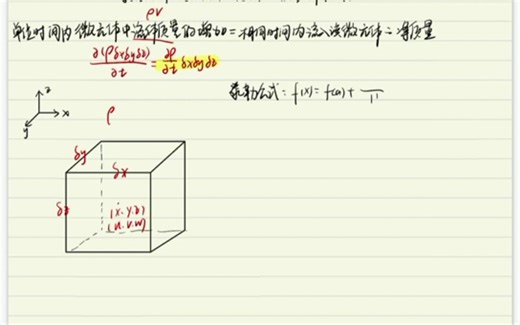 ρV
单位时间内微元体中流体质量的增加=相同时间内流入该微元体之净质量
∂(ρδxδyδz)/∂t = ∂ρ/∂t δxδyδz
泰勒公式: f(x)= f(a)+
z
x
y
ρ
δy
δx
δz
(x.y.z)
(u.v.w)